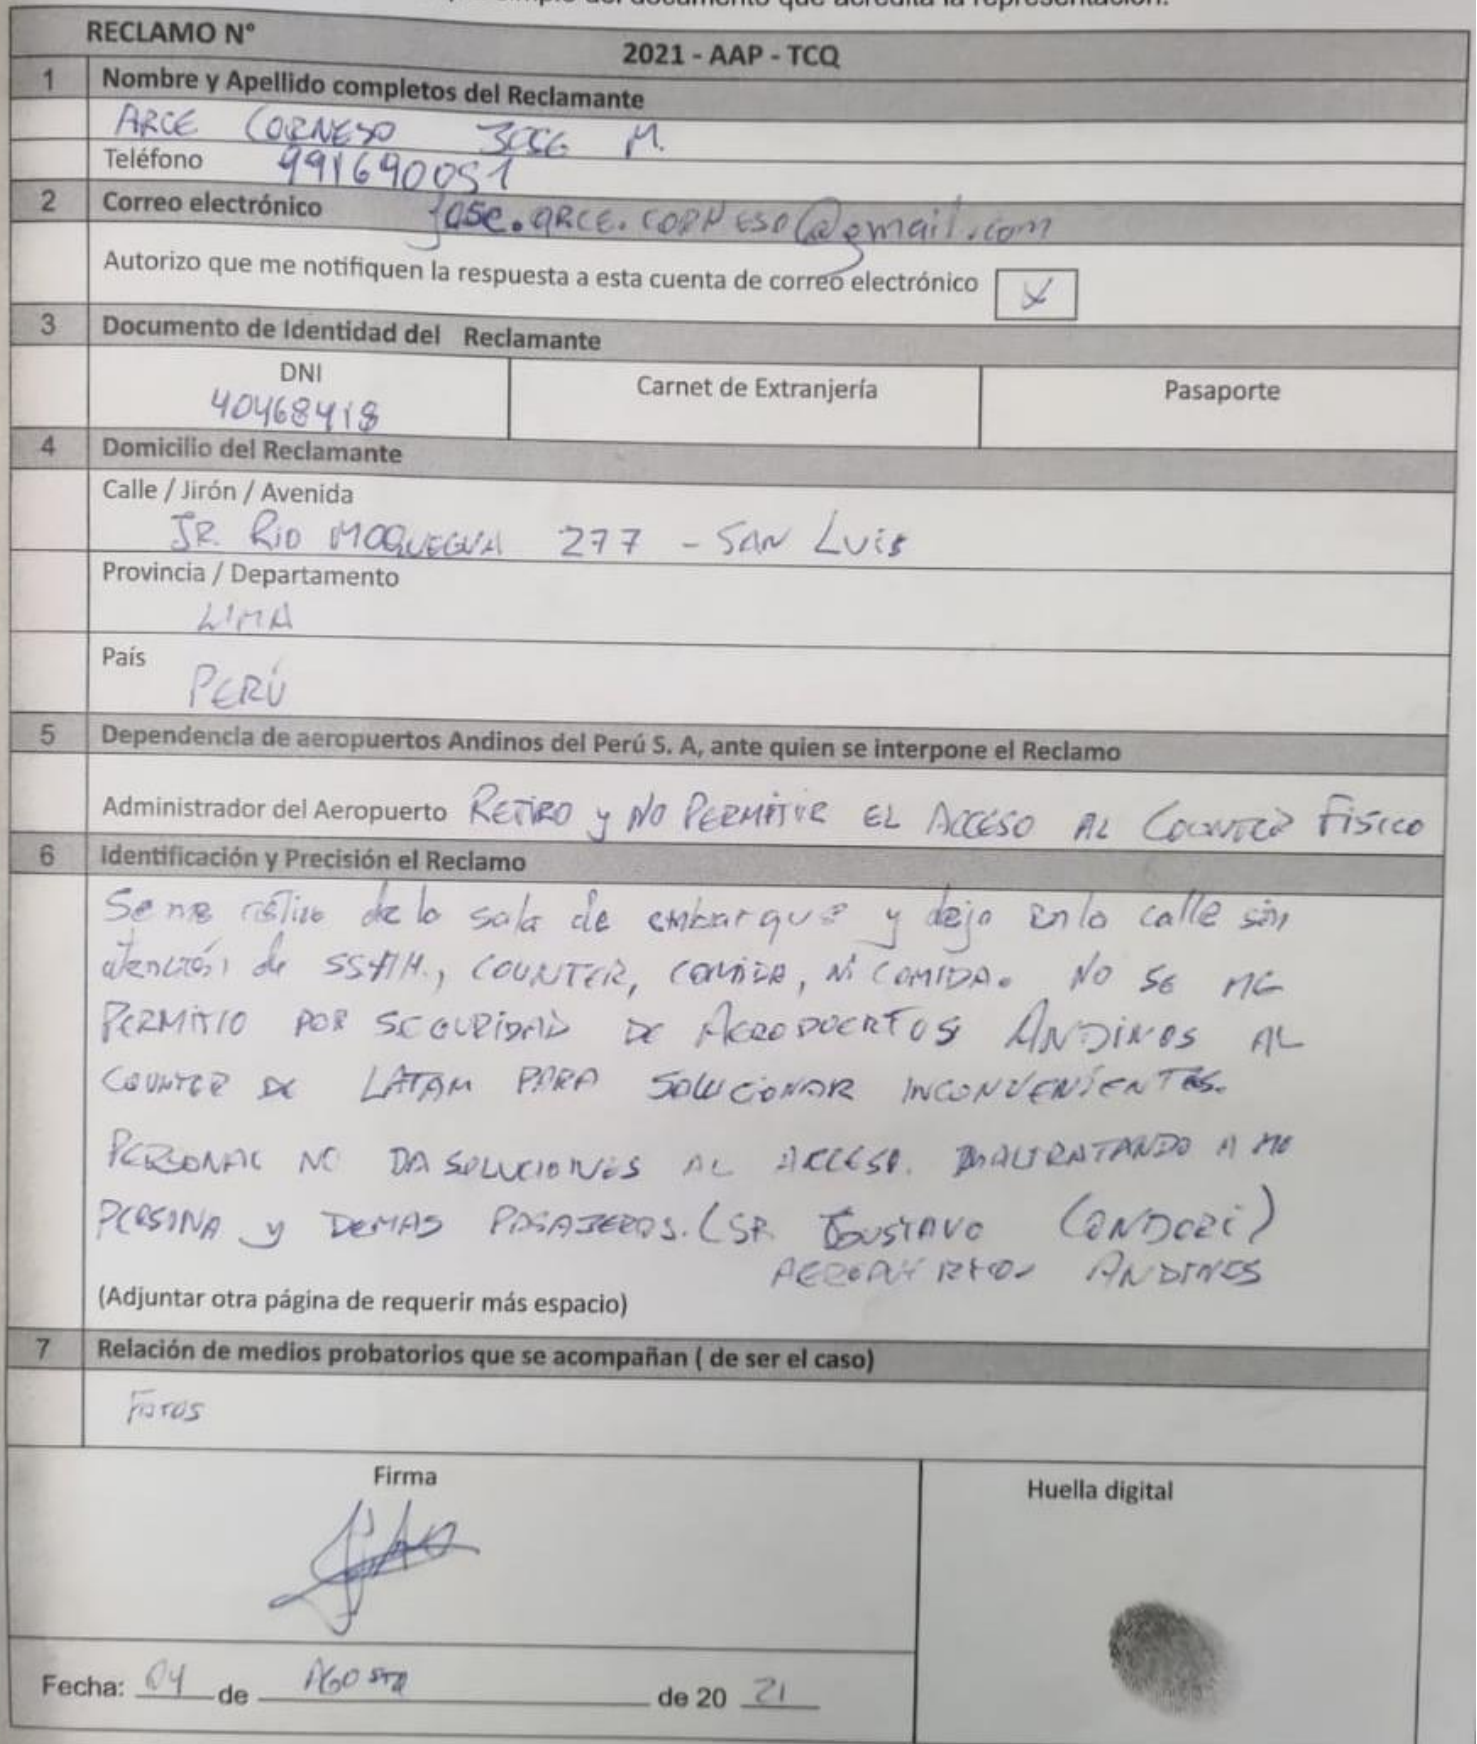 simple del documento que acredita la representación.
RECLAMO N°
2021 - AAP - TCQ
1 Nombre y Apellido completos del Reclamante
ARCE CORNEJO JOSE M.
Teléfono 991690051
2 Correo electrónico jose.arce.cornejo@gmail.com
Autorizo que me notifiquen la respuesta a esta cuenta de correo electrónico X
3 Documento de Identidad del Reclamante
DNI Carnet de Extranjería Pasaporte
40468418
4 Domicilio del Reclamante
Calle / Jirón / Avenida
JR. RIO MOQUEGUA 277 - SAN LUIS
Provincia / Departamento
LIMA
País
PERÚ
5 Dependencia de aeropuertos Andinos del Perú S. A, ante quien se interpone el Reclamo
Administrador del Aeropuerto RETIRO y NO PERMITIR EL ACCESO AL COUNTER FISICO
6 Identificación y Precisión el Reclamo
Se me retiro de la sala de embarque y dejo en la calle sin
atención de SSHH., COUNTER, NI COMIDA. NO SE ME
PERMITIO POR SEGURIDAD DE AEROPUERTOS ANDINOS AL
COUNTER DE LATAM PARA SOLUCIONAR INCONVENIENTES.
PERSONAL NO DA SOLUCIONES AL ACCESO. MALTRATANDO A MI
PERSONA y DEMAS PASAJEROS. (SR. GUSTAVO CONDORI)
AEROPUERTOS ANDINOS
(Adjuntar otra página de requerir más espacio)
7 Relación de medios probatorios que se acompañan ( de ser el caso)
FOTOS
Firma Huella digital
Fecha: 04 de AGOSTO de 20 21